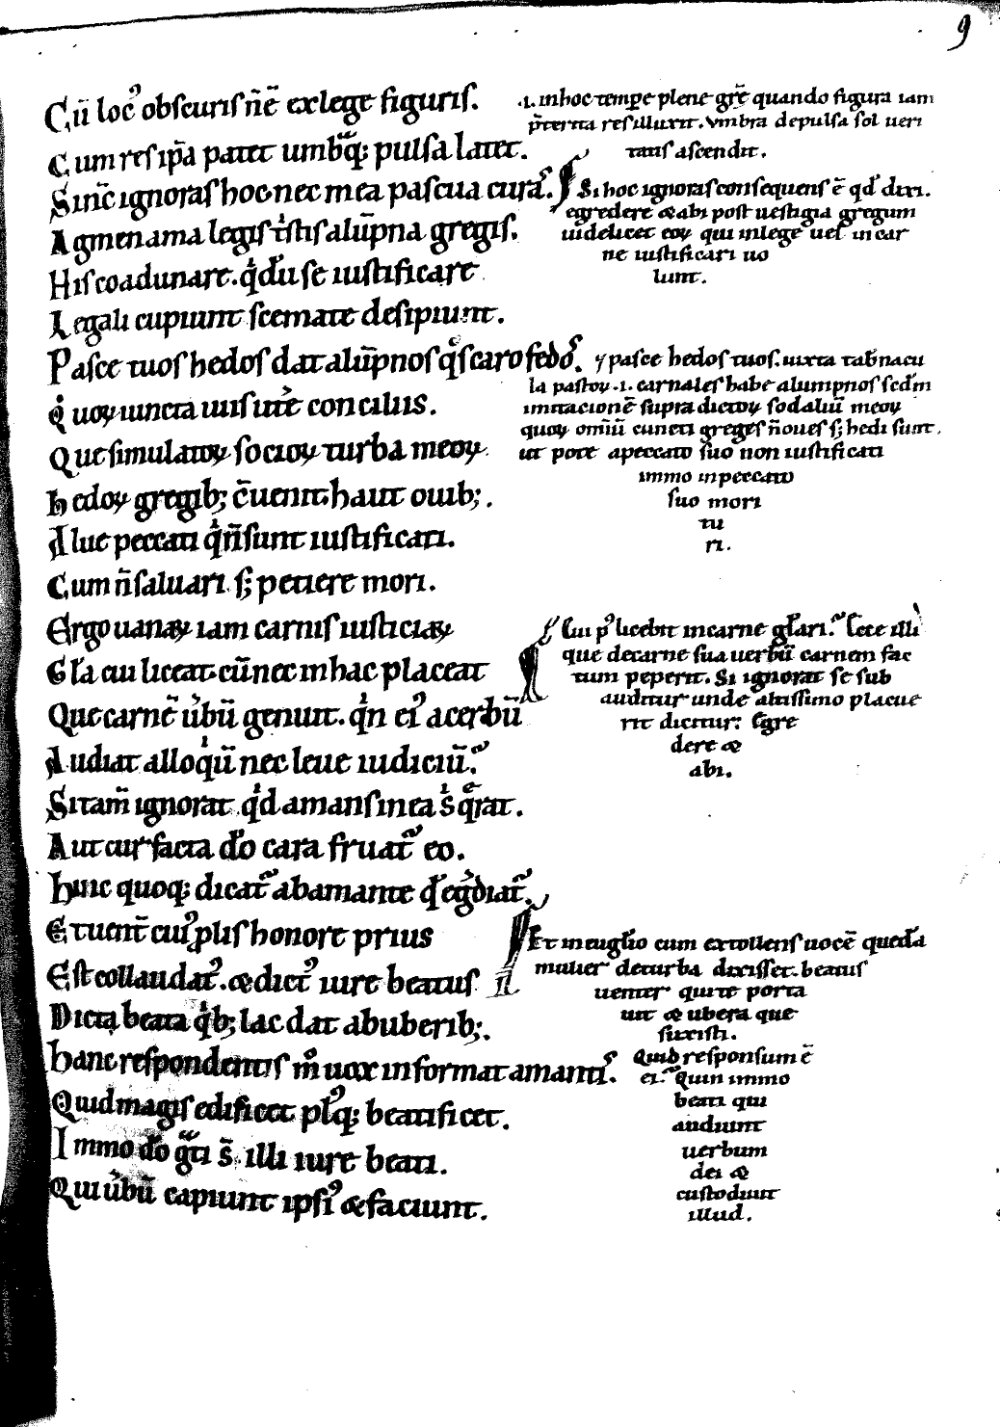 9
Cū loc᾽ obscuris nē ex lege figuris.
Cum res ip̄a patet umbͣq; pulsa latet.
Sin̄c ignoras hoc nec mea pascua curas.
Agmen ama legis tͥstis alūpna gregis.
His coadunare. qͥ dū se iustificare
Legali cupiunt scemate desipiunt.
Pasce tuos hedos dat alūpnos qͦs caro fedos.
Qͥuoꝝ iuncta uiis uit᾽e conciliis.
Que simulatoꝝ socioꝝ turba meoꝝ.
hedoꝝ gregib; c̄uenit haut ouib;.
A lue peccati qͥ n̄ sunt iustificati.
Cum n̄ saluari s; petiere mori.
Ergo uanaꝝ iam carnis iusticiaꝝ
Gl̄a cui liceat. cū nec in hac placeat
Que carnē ūbū genuit. qͥn ei᾽ acerbū
Audiat alloqͥū nec leue iudiciū.
Si tam̄ ignorat qͥd amans in ea s̄ qͥrat.
Aut cur facta dō cara fruat᾽ eo.
hinc quoq; dicat᾽ ab amante qͥ eg᾽diat᾽.
Et uent̄ cui᾽ plis honore prius
Est collaudat᾽. & dict᾽ iure beatus
Dicta beata qͥb; lac dat ab uberib;.
hanc respondentis mͦ uox informat amantis.
Quid magis edificet pl᾽q; beatificet.
Immo dō gͣti s̄ illi iure beati.
Qui ūbū capiunt ipsi᾽ & faciunt.
.i. in hoc tempe plene gr̄e quando figura iam
p̄terita res illuxit. vmbra depulsa sol ueri
tatis ascendit.
Si hoc ignoras consequens ē qd̄ dixi.
egredere & abi post uestigia gregum
uidelicet eoꝝ qui in lege uel in car
ne iustificari uo
lunt.
⁊ pasce hedos tuos. iuxta tab̄nacu
la pastoꝝ .i. carnales habe alumpnos scd̄m
imitacionē supra dictoꝝ sodaliū meoꝝ
quoꝝ om̄iū cuncti greges n̄ oues s; hedi sunt.
ut pote a peccato suo non iustificati
immo in peccato
suo mori
tu
ri.
Cui p᾽ licebit in carne gl̄ari. Ecce illi
que de carne sua uerbū carnem fac
tum peperit. Si ignorat se sub
auditur unde altissimo placue
rit dicitur: Egre
dere &
abi.
Et in euglio cum extollens uocē queda
mulier de turba dixisset. beatus
uenter qui te porta
uit & ubera que
suxisti.
Quid responsum ē
ei. Quin immo
beati qui
audiunt
uerbum
dei &
custodiunt
illud.